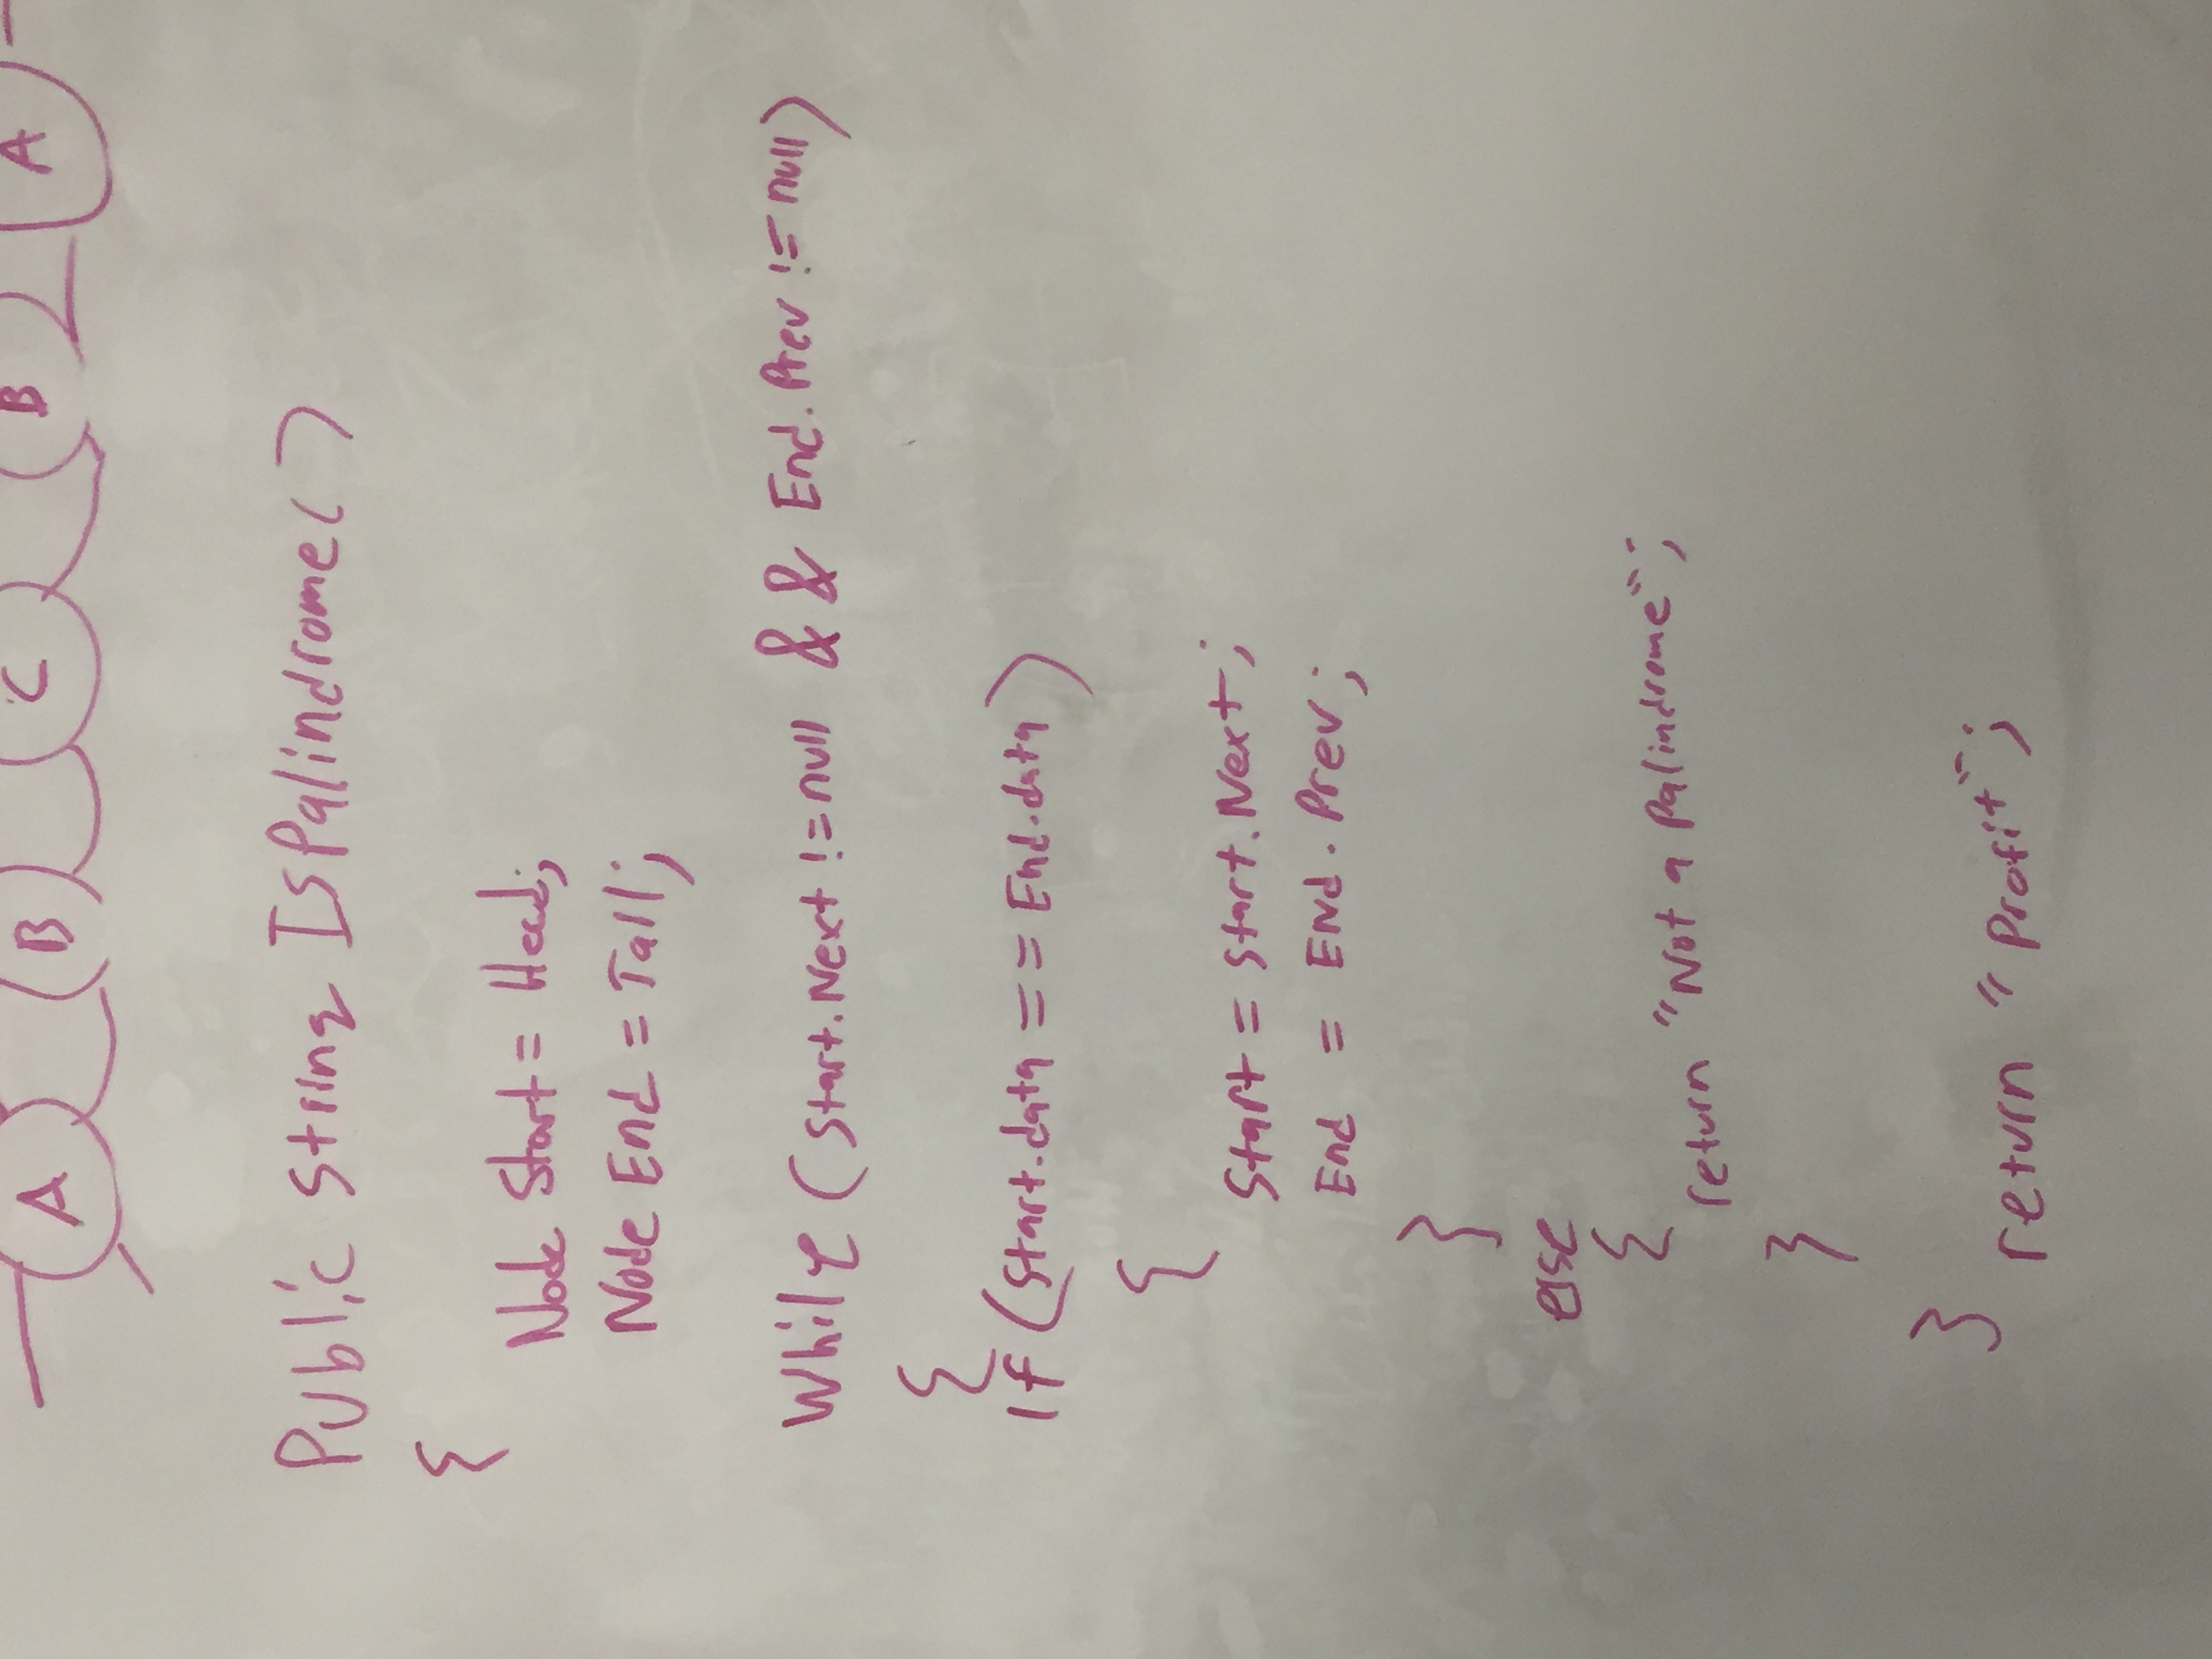 A B C B A
Public String IsPalindrome()
{
Node Start = Head;
Node End = Tail;
While (Start.Next != null && End.Prev != null)
{
If (Start.data == End.data)
{
Start = Start.Next;
End = End.Prev;
}
else
{
return "Not a Palindrome";
}
}
return "Profit";